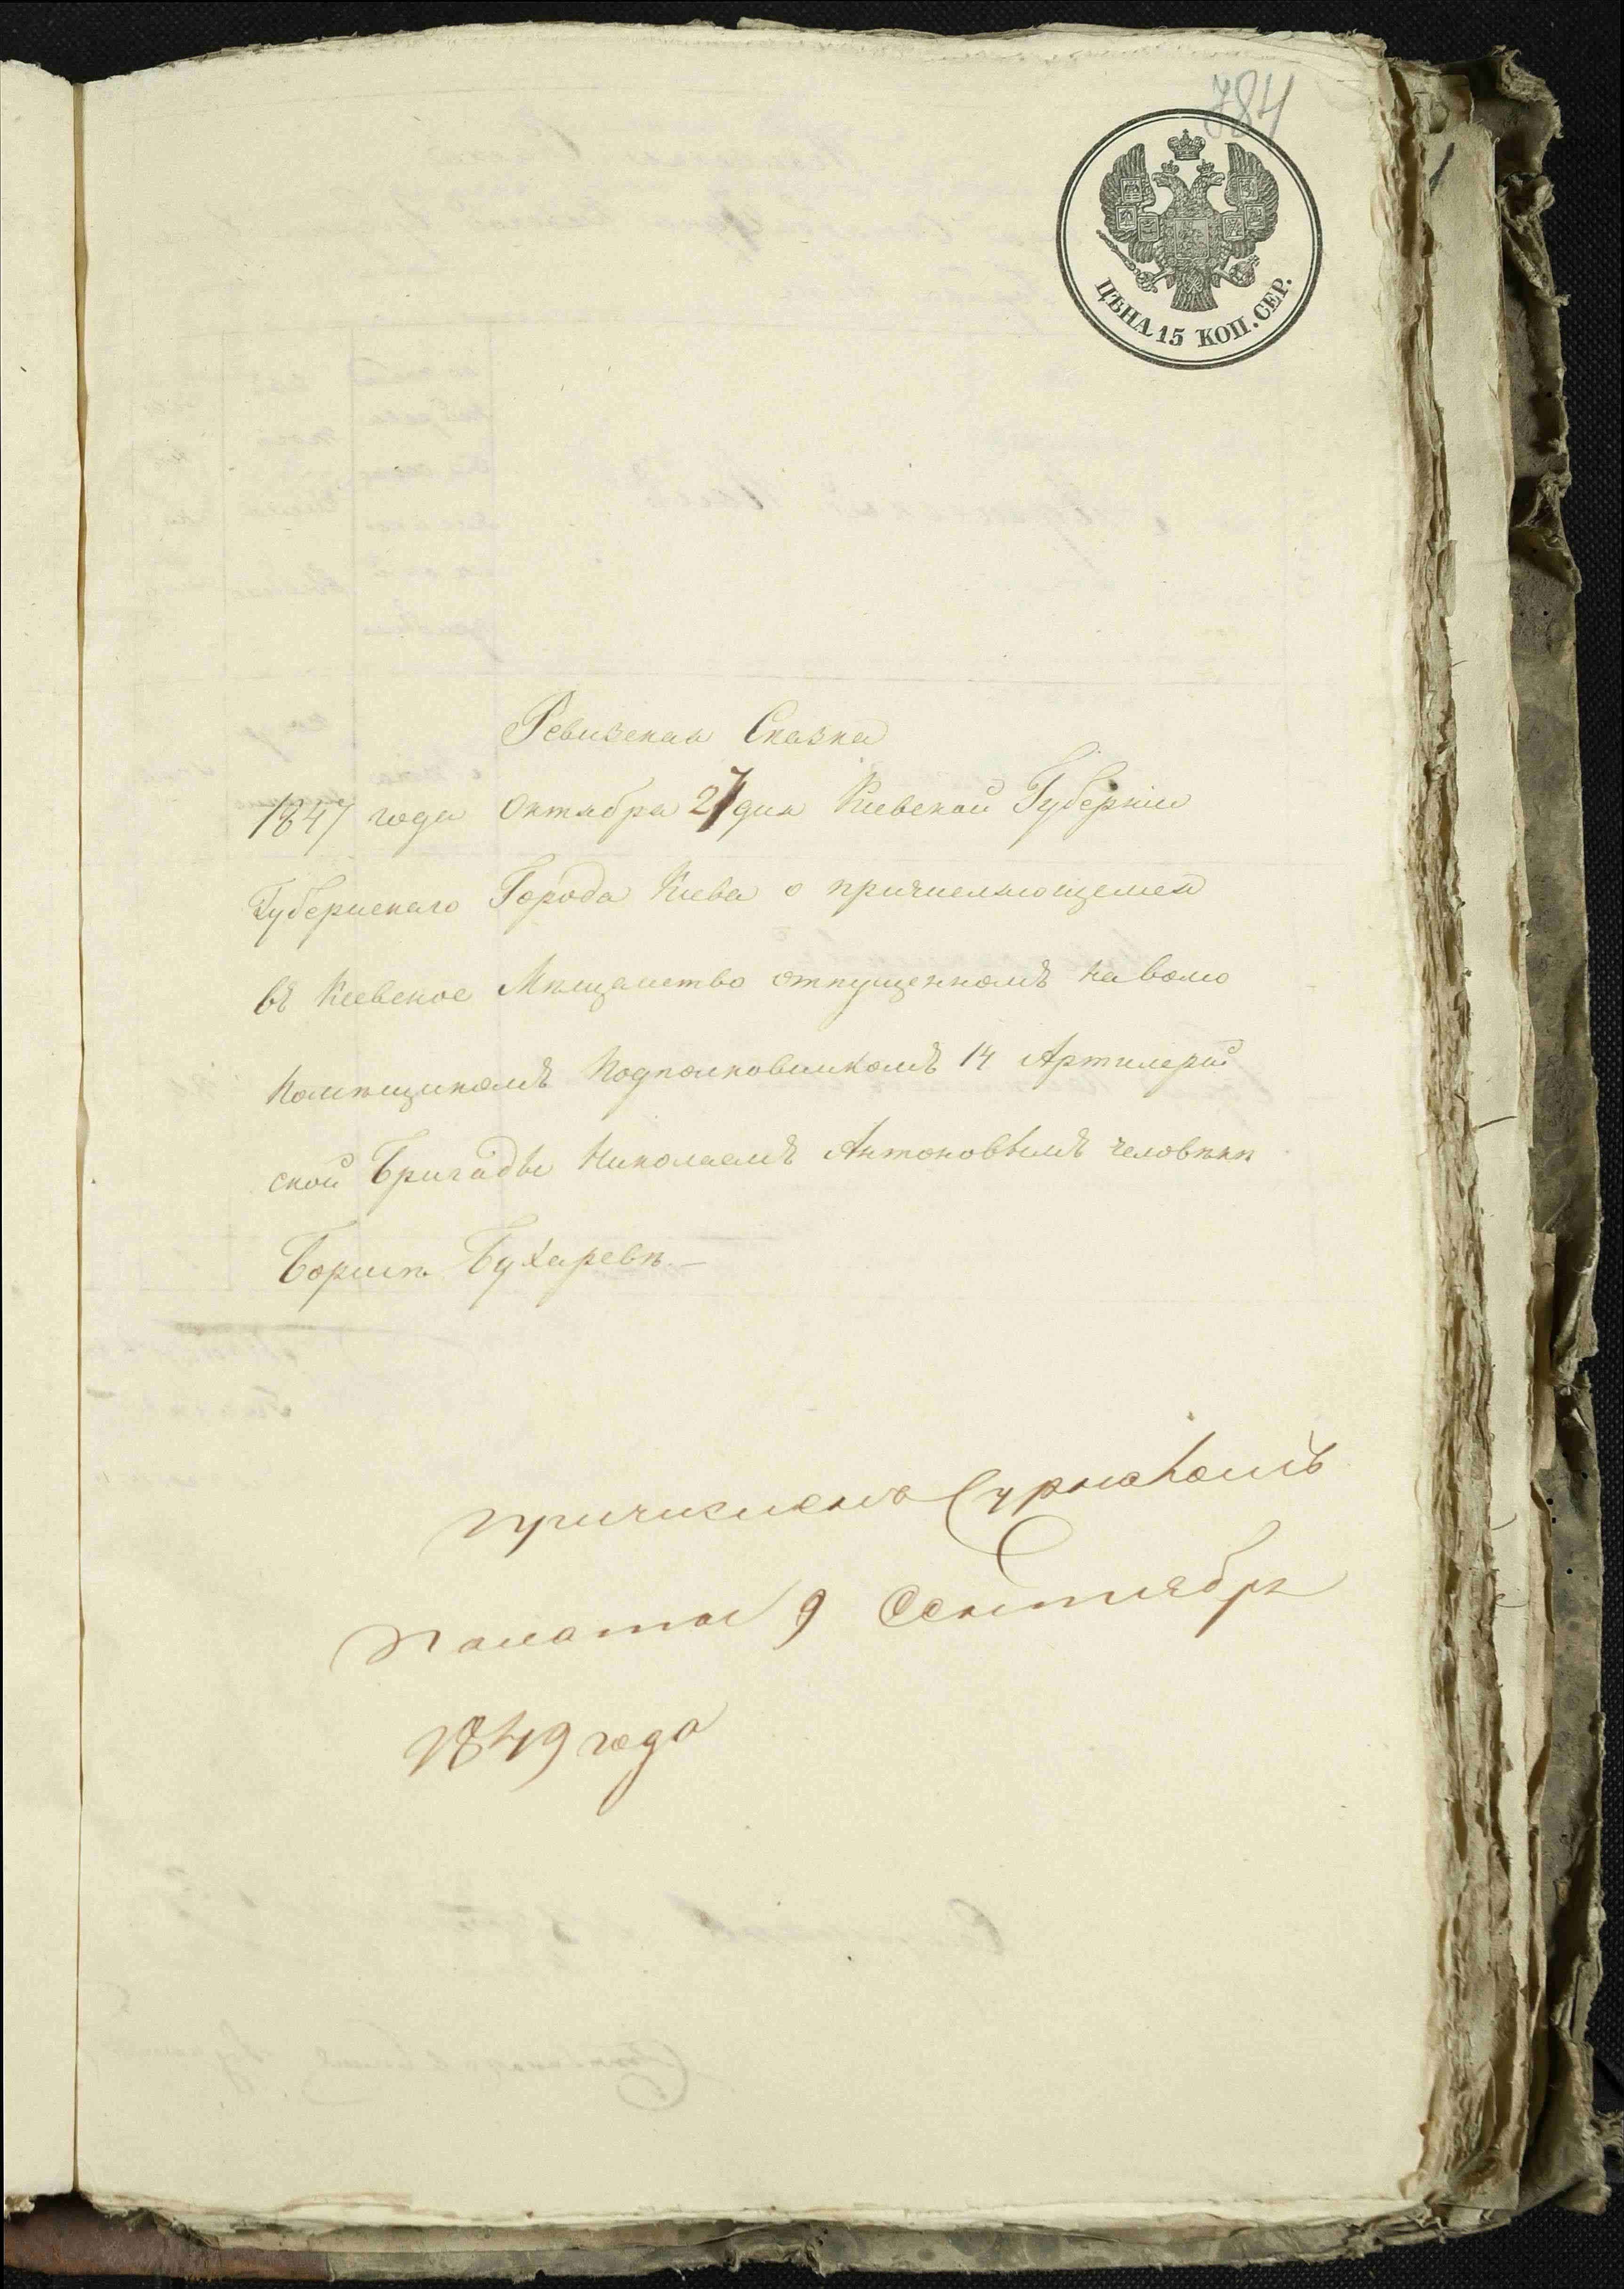 784
ЦѢНА 15 КОП. СЕР.
Ревизская Сказка
1847 года Октября 27 дня Киевской Губерніи
Губернскаго Города Кіева о причисляющемся
въ Киевское Мѣщанство отпущенномъ на волю
помѣщикомъ Подполковникомъ 14 Артилерій
ской Бригады Николаемъ Антоновымъ человѣкѣ
Борисѣ Бухаревѣ. —
причисленъ Сурпакомъ
Палаты 9 Сентября
1849 года